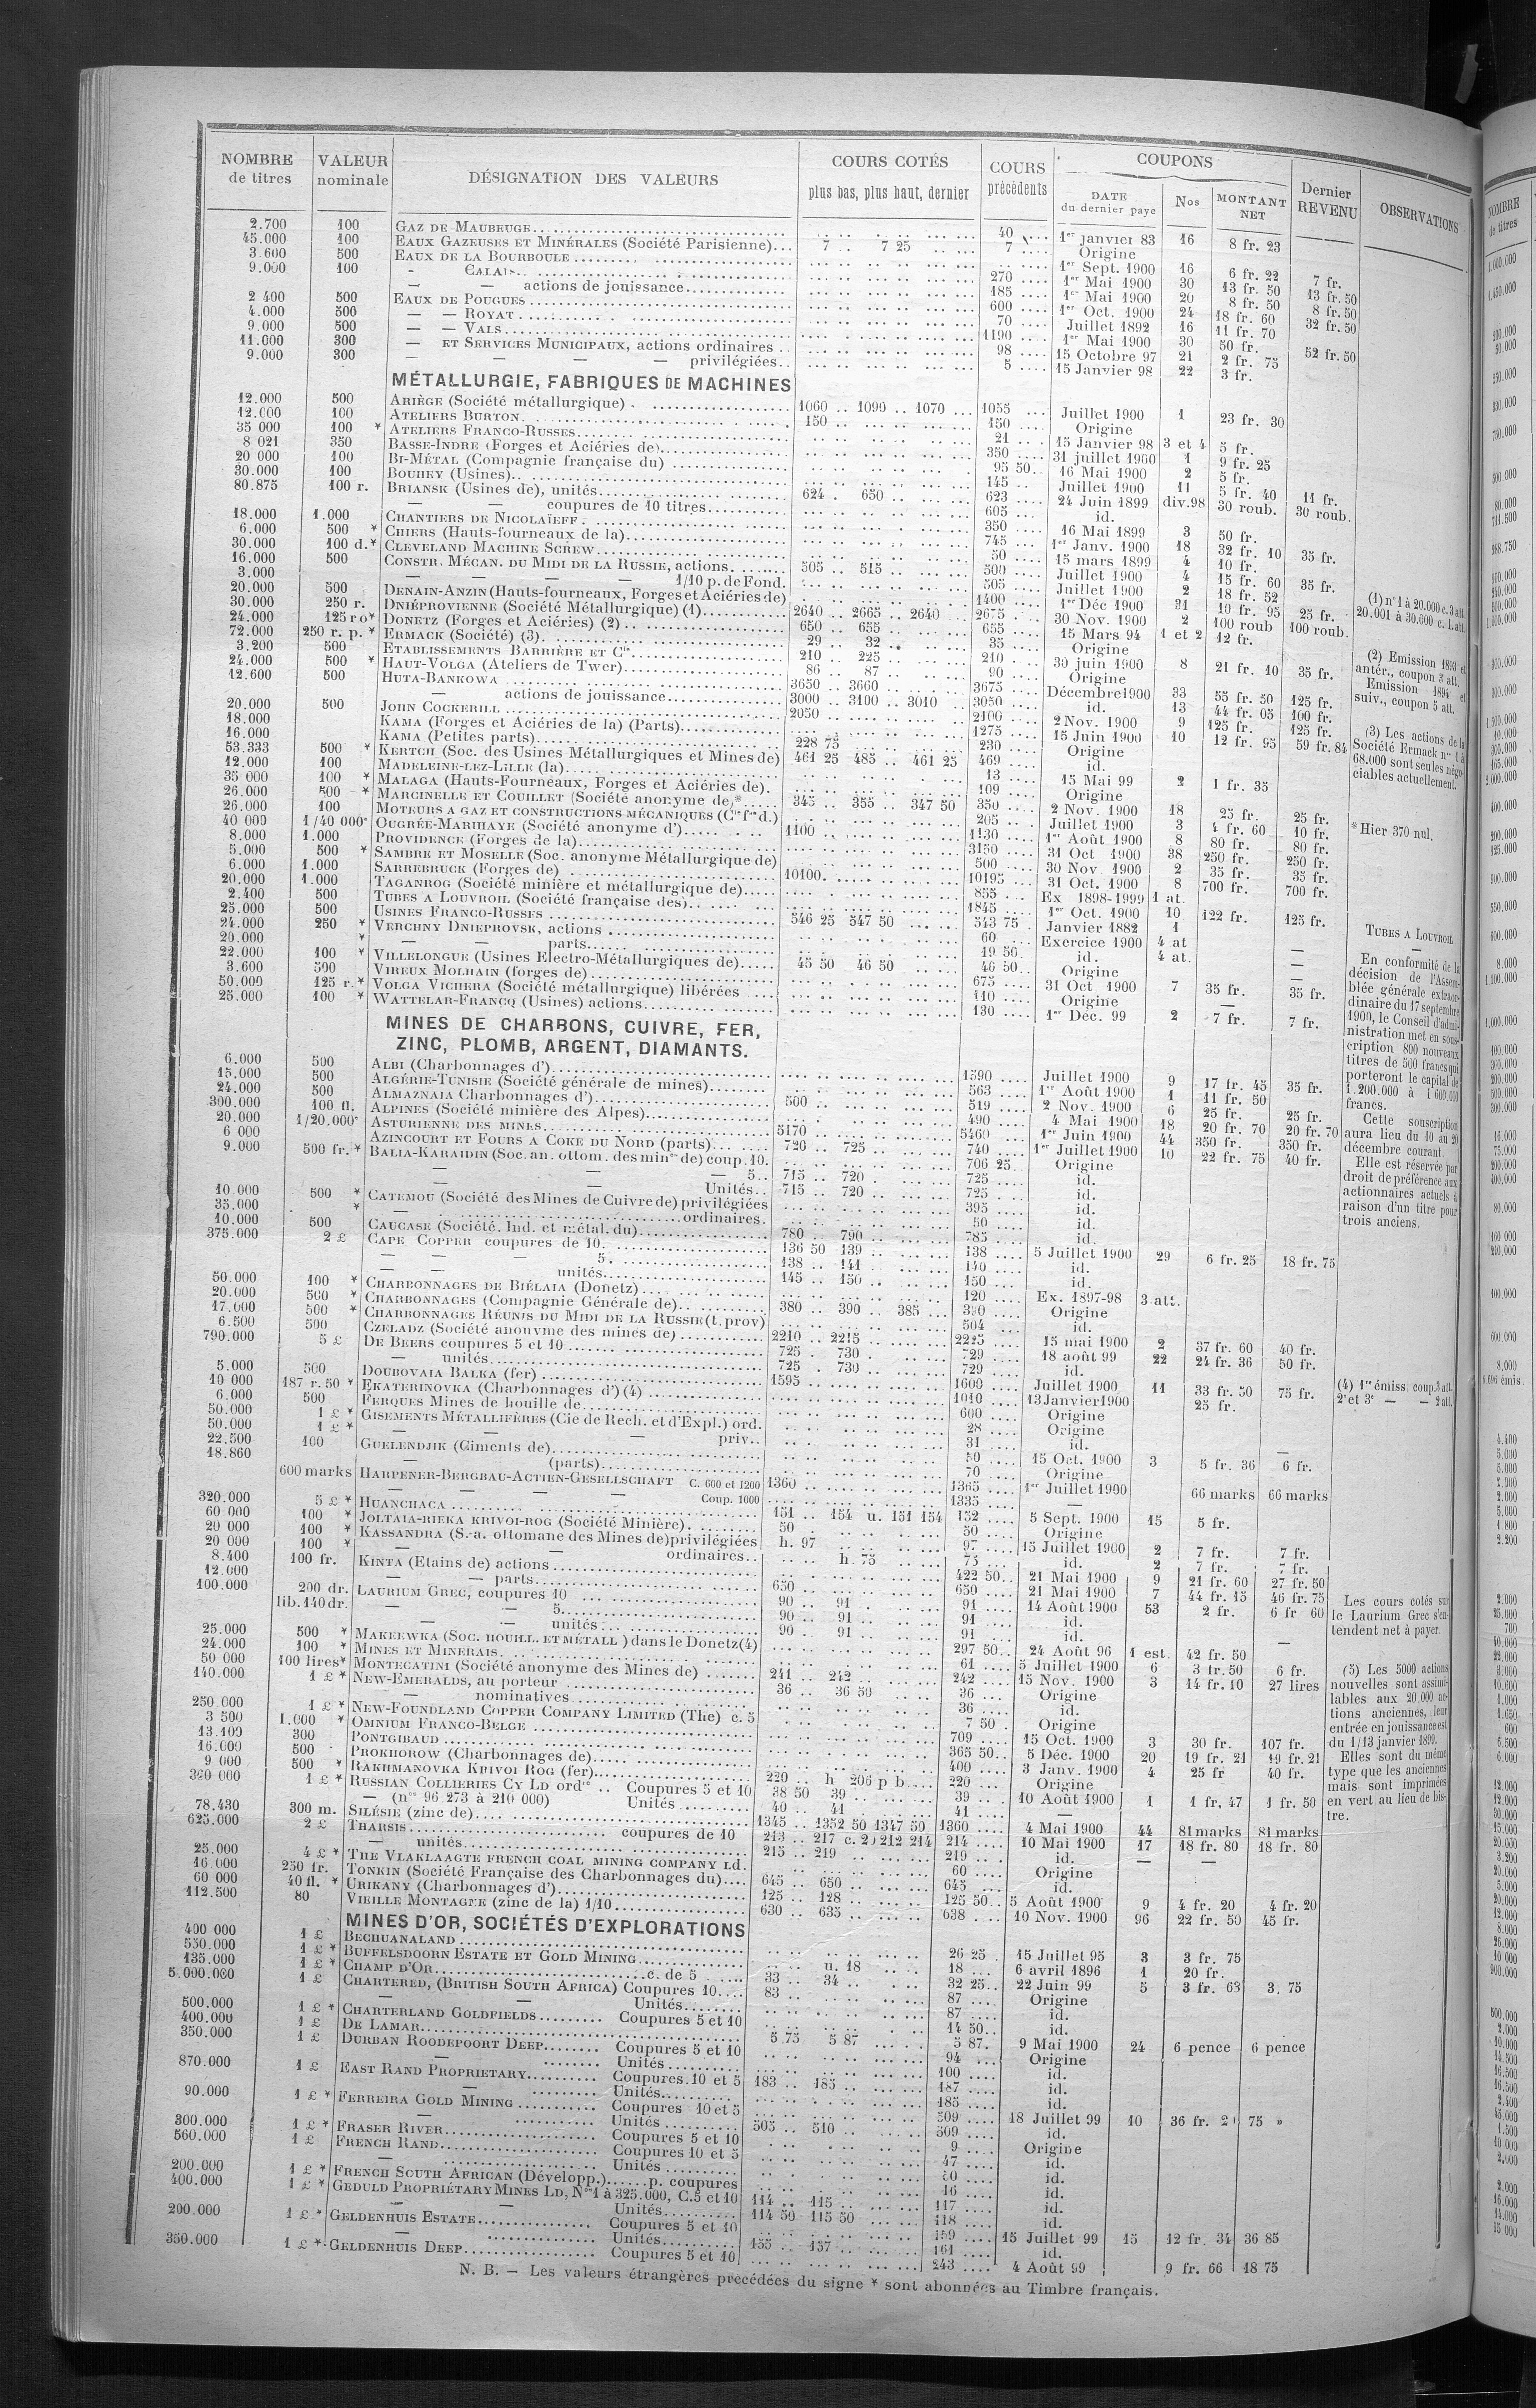 NOMBRE de titres | VALEUR nominale | DÉSIGNATION DES VALEURS | COURS COTÉS plus bas, plus haut, dernier | COURS précédents | COUPONS DATE du dernier paye | Nos | MONTANT NET | Dernier REVENU | OBSERVATIONS
2.700 100 GAZ DE MAUBEUGE 40 1er janvier 83 16 8 fr. 23
45.000 100 EAUX GAZEUSES ET MINÉRALES (Société Parisienne) 7 .. 7 25 7 Origine
3.600 500 EAUX DE LA BOURBOULE 1er Sept. 1900 16 6 fr. 22 7 fr.
9.000 100 — CALAIS 270 1er Mai 1900 30 13 fr. 50 13 fr. 50
— — actions de jouissance 185 1er Mai 1900 20 8 fr. 50 8 fr. 50
2 400 500 EAUX DE POUGUES 600 1er Oct. 1900 24 18 fr. 60 32 fr. 50
4.000 500 — — ROYAT 70 Juillet 1892 16 11 fr. 70
9.000 500 — — VALS 1190 1er Mai 1900 30 50 fr. 52 fr. 50
11.000 300 — ET SERVICES MUNICIPAUX, actions ordinaires 98 15 Octobre 97 21 2 fr. 75
9.000 300 — — — privilégiées 5 15 Janvier 98 22 3 fr.
MÉTALLURGIE, FABRIQUES DE MACHINES
12.000 500 ARIÈGE (Société métallurgique) 1060 .. 1090 .. 1070 1055 Juillet 1900 1 23 fr. 30
12.000 100 ATELIERS BURTON 150 150 Origine
35 000 100 * ATELIERS FRANCO-RUSSES 21 15 Janvier 98 3 et 4 5 fr.
8 021 350 BASSE-INDRE (Forges et Aciéries de) 350 31 juillet 1900 1 9 fr. 25
20 000 100 BI-MÉTAL (Compagnie française du) 95 50 16 Mai 1900 2 5 fr.
30.000 100 BOUHEY (Usines) 145 Juillet 1900 11 5 fr. 40 11 fr.
80.875 100 r. BRIANSK (Usines de), unités 624 . 650 623 24 Juin 1899 div.98 30 roub. 30 roub.
— — coupures de 10 titres 605 id.
18.000 1.000 CHANTIERS DE NICOLAÏEFF 350 16 Mai 1899 3 50 fr.
6.000 500 * CHIERS (Hauts-fourneaux de la) 745 1er Janv. 1900 18 32 fr. 10 35 fr.
30.000 100 d.* CLEVELAND MACHINE SCREW 50 15 mars 1899 4 10 fr.
16.000 500 CONSTR. MÉCAN. DU MIDI DE LA RUSSIE, actions 505 .. 515 500 Juillet 1900 4 15 fr. 60 35 fr.
3.000 — — — — 1/10 p. de Fond. 505 Juillet 1900 2 18 fr. 52
20.000 500 DENAIN-ANZIN (Hauts-fourneaux, Forges et Aciéries de) 1400 1er Déc 1900 31 10 fr. 95 25 fr.
30.000 250 r. DNIÉPROVIENNE (Société Métallurgique) (1) 2640 .. 2665 .. 2640 2675 30 Nov. 1900 2 100 roub 100 roub.
24.000 125 r o* DONETZ (Forges et Aciéries) (2) 650 .. 655 655 15 Mars 94 1 et 2 12 fr.
72.000 250 r. p. * ERMACK (Société) (3) 29 .. 32 35 Origine
3.200 500 ETABLISSEMENTS BARRIÈRE ET Cie 210 .. 225 210 30 juin 1900 8 21 fr. 10 35 fr.
24.000 500 * HAUT-VOLGA (Ateliers de Twer) 86 .. 87 90 Origine
12.600 500 HUTA-BANKOWA 3650 .. 3660 3675 Décembre 1900 33 55 fr. 50 125 fr.
— actions de jouissance 3000 .. 3100 .. 3010 3050 id. 13 44 fr. 05 100 fr.
20.000 500 JOHN COCKERILL 2050 2100 2 Nov. 1900 9 125 fr. 125 fr.
18.000 KAMA (Forges et Aciéries de la) (Parts) 1275 15 Juin 1900 10 12 fr. 95 59 fr. 84
16.000 KAMA (Petites parts) 228 75 230 Origine
53.333 500 * KERTCH (Soc. des Usines Métallurgiques et Mines de) 461 25 485 .. 461 25 469 id.
12.000 100 MADELEINE-LEZ-LILLE (la) 13 15 Mai 99 2 1 fr. 35
35 000 100 * MALAGA (Hauts-Fourneaux, Forges et Aciéries de) 109 Origine
26.000 500 * MARCINELLE ET COUILLET (Société anonyme de)* 345 .. 355 .. 347 50 350 2 Nov. 1900 18 25 fr. 25 fr.
26.000 100 MOTEURS A GAZ ET CONSTRUCTIONS MÉCANIQUES (Cie fse d.) 205 Juillet 1900 3 4 fr. 60 10 fr.
40 000 1/40 000e OUGRÉE-MARIHAYE (Société anonyme d') 1100 1130 1er Août 1900 8 80 fr. 80 fr.
8.000 1.000 PROVIDENCE (Forges de la) 3150 31 Oct 1900 38 250 fr. 250 fr.
5.000 500 * SAMBRE ET MOSELLE (Soc. anonyme Métallurgique de) 500 30 Nov. 1900 2 35 fr. 35 fr.
6.000 1.000 SARREBRUCK (Forges de) 10100 10195 31 Oct. 1900 8 700 fr. 700 fr.
20.000 1.000 TAGANROG (Société minière et métallurgique de) 855 Ex 1898-1999 1 at.
2.400 500 TUBES A LOUVROIL (Société française des) 1845 1er Oct. 1900 10 122 fr. 125 fr.
25.000 500 USINES FRANCO-RUSSES 546 25 547 50 543 75 Janvier 1882 1
24.000 250 * VERCHNY DNIEPROVSK, actions 60 Exercice 1900 4 at —
20.000 * — — parts 49 50 id. 4 at. —
22.000 100 * VILLELONGUE (Usines Electro-Métallurgiques de) 45 50 46 50 46 50 Origine —
3.600 500 VIREUX MOLHAIN (forges de) 675 31 Oct 1900 7 35 fr. 35 fr.
50.000 125 r.* VOLGA VICHERA (Société métallurgique) libérées 110 Origine —
25.000 100 * WATTELAR-FRANCQ (Usines) actions 130 1er Déc. 99 2 7 fr. 7 fr.
MINES DE CHARBONS, CUIVRE, FER,
ZINC, PLOMB, ARGENT, DIAMANTS.
6.000 500 ALBI (Charbonnages d') 1590 Juillet 1900 9 17 fr. 45 35 fr.
15.000 500 ALGÉRIE-TUNISIE (Société générale de mines) 563 1er Août 1900 1 11 fr. 50
24.000 500 ALMAZNAIA Charbonnages d') 500 519 2 Nov. 1900 6 25 fr. 25 fr.
300.000 100 fl. ALPINES (Société minière des Alpes) 490 4 Mai 1900 18 20 fr. 70 20 fr. 70
20.000 1/20.000e ASTURIENNE DES MINES 5170 5460 1er Juin 1900 44 350 fr. 350 fr.
6 000 AZINCOURT ET FOURS A COKE DU NORD (parts) 720 .. 725 740 1er Juillet 1900 10 22 fr. 75 40 fr.
9.000 500 fr. * BALIA-KARAIDIN (Soc. an. ottom. des mines de) coup. 10. 706 25 Origine
— — 5.. 715 .. 720 725 id.
— — Unités.. 715 .. 720 725 id.
10.000 500 * CATEMOU (Société des Mines de Cuivre de) privilégiées 395 id.
35.000 * — ordinaires. 50 id.
10.000 500 CAUCASE (Société. Ind. et métal. du) 780 .. 790 785 id.
375.000 2 £ CAPE COPPER coupures de 10. 136 50 139 138 5 Juillet 1900 29 6 fr. 25 18 fr. 75
— — 5. 138 .. 141 140 id.
— — unités 145 .. 150 150 id.
50.000 100 * CHARBONNAGES DE BIÉLAIA (Donetz) 120 Ex. 1897-98 3 att.
20.000 500 * CHARBONNAGES (Compagnie Générale de) 380 .. 390 .. 385 390 Origine
17.000 500 * CHARBONNAGES RÉUNIS DU MIDI DE LA RUSSIE (t. prov) 504 id.
6.500 500 CZELADZ (Société anonyme des mines de) 2210 .. 2215 2225 15 mai 1900 2 37 fr. 60 40 fr.
790.000 5 £ DE BEERS coupures 5 et 10 725 . 730 729 18 août 99 22 24 fr. 36 50 fr.
— unités 725 . 730 729 id
5.000 500 DOUBOVAIA BALKA (fer) 1595 1600 Juillet 1900 11 33 fr. 50 75 fr.
10 000 187 r. 50 * EKATERINOVKA (Charbonnages d') (4) 1010 13 Janvier 1900 25 fr.
6.000 500 FERQUES Mines de houille de 600 Origine
50.000 1 £ * GISEMENTS MÉTALLIFÈRES (Cie de Rech. et d'Expl.) ord. 28 Origine
50.000 1 £ * — — priv.. 31 id.
22.500 100 GUELENDJIK (Ciments de) 50 15 Oct. 1900 3 5 fr. 36 6 fr.
18.860 — (parts) 70 Origine
600 marks HARPENER-BERGBAU-ACTIEN-GESELLSCHAFT C. 600 et 1200 1360 1365 1er Juillet 1900 66 marks 66 marks
— — — — Coup. 1000 1335 —
320.000 5 £ * HUANCHACA 151 .. 154 u. 151 154 152 5 Sept. 1900 15 5 fr.
60 000 100 * JOLTAIA-RIEKA KRIVOI-ROG (Société Minière) 50 50 Origine
20 000 100 * KASSANDRA (S.-a. ottomane des Mines de) privilégiées h. 97 97 15 Juillet 1900 2 7 fr. 7 fr.
20 000 100 * — ordinaires.. h. 75 75 id. 2 7 fr. 7 fr.
8.400 100 fr. KINTA (Etains de) actions 422 50 21 Mai 1900 9 21 fr. 60 27 fr. 50
12.000 — — parts 650 650 21 Mai 1900 7 44 fr. 15 46 fr. 75
100.000 200 dr. LAURIUM GREC, coupures 10 90 .. 91 91 14 Août 1900 53 2 fr. 6 fr 60
lib. 140 dr. — — 5 90 .. 91 91 id.
— — unités 90 .. 91 91 id.
25.000 500 * MAKEEWKA (SOC. HOUILL. ET MÉTALL) dans le Donetz (4) 297 50 24 Août 96 1 est. 42 fr. 50 —
24.000 100 * MINES ET MINERAIS 61 5 Juillet 1900 6 3 fr. 50 6 fr.
50 000 100 lires* MONTECATINI (Société anonyme des Mines de) 241 .. 242 242 15 Nov. 1900 3 14 fr. 10 27 lires
140.000 1 £ * NEW-EMERALDS, au porteur 36 .. 36 50 36 Origine
— nominatives 36 id.
250.000 1 £ * NEW-FOUNDLAND COPPER COMPANY LIMITED (The) c. 5 7 50 Origine
3 500 1.000 * OMNIUM FRANCO-BELGE 709 15 Oct. 1900 3 30 fr. 107 fr.
13.100 300 PONTGIBAUD 365 50 5 Déc. 1900 20 19 fr. 21 19 fr. 21
16.000 500 PROKHOROW (Charbonnages de) 400 3 Janv. 1900 4 25 fr 40 fr.
9 000 500 * RAKHMANOVKA KRIVOI ROG (fer) 220 .. h 206 p b 220 Origine
360 000 1 £ * RUSSIAN COLLIERIES CY LD ordre Coupures 5 et 10 38 50 39 39 10 Août 1900 1 1 fr. 47 1 fr. 50
— (nos 96.273 à 210 000) Unités 40 .. 41 41 —
78.430 300 m. SILÉSIE (zinc de) 1345 .. 1352 50 1347 50 1360 4 Mai 1900 44 81 marks 81 marks
625.000 2 £ THARSIS coupures de 10 213 .. 217 c. 2) 212 214 214 10 Mai 1900 17 18 fr. 80 18 fr. 80
— unités 215 .. 219 219 id. — —
25.000 4 £ * THE VLAKLAAGTE FRENCH COAL MINING COMPANY LD. 60 Origine
16.000 250 fr. TONKIN (Société Française des Charbonnages du) 645 .. 650 645 id.
60 000 40 fl. * URIKANY (Charbonnages d') 125 .. 128 125 50 5 Août 1900 9 4 fr. 20 4 fr. 20
112.500 80 VIEILLE MONTAGNE (zinc de la) 1/10 630 .. 635 638 10 Nov. 1900 96 22 fr. 50 45 fr.
MINES D'OR, SOCIÉTÉS D'EXPLORATIONS
400 000 1 £ BECHUANALAND 26 25 15 Juillet 95 3 3 fr. 75
550.000 1 £ * BUFFELSDOORN ESTATE ET GOLD MINING u. 18 18 6 avril 1896 1 20 fr.
135.000 1 £ * CHAMP D'OR c. de 5 33 .. 34 32 25 22 Juin 99 5 3 fr. 63 3. 75
5.000.000 1 £ CHARTERED, (BRITISH SOUTH AFRICA) Coupures 10 83 87 Origine
— — Unités 87 id.
500.000 1 £ * CHARTERLAND GOLDFIELDS Coupures 5 et 10 14 50 id.
400.000 1 £ DE LAMAR 5.75 5 87 5 87 9 Mai 1900 24 6 pence 6 pence
350.000 1 £ DURBAN ROODEPOORT DEEP Coupures 5 et 10 94 Origine
— Unités 100 id.
870.000 1 £ EAST RAND PROPRIETARY Coupures. 10 et 5 183 .. 185 187 id.
— Unités 185 id.
90.000 1 £ * FERREIRA GOLD MINING Coupures 10 et 5 509 18 Juillet 99 10 36 fr. 2 75 »
— Unités 505 .. 510 509 id.
300.000 1 £ * FRASER RIVER Coupures 5 et 10 9 Origine
560.000 1 £ FRENCH RAND Coupures 10 et 5 47 id.
— Unités id.
200.000 1 £ * FRENCH SOUTH AFRICAN (Développ.) p. coupures 16 id.
400.000 1 £ * GEDULD PROPRIÉTARY MINES LD, Nos 1 à 325.000, C. 5 et 10 114 .. 115 117 id.
— — Unités 114 50 115 50 118 id.
200.000 1 £ * GELDENHUIS ESTATE Coupures 5 et 10 159 15 Juillet 99 15 12 fr. 34 36 85
— Unités 155 .. 157 161 id.
350.000 1 £ * GELDENHUIS DEEP Coupures 5 et 10 243 4 Août 99 9 fr. 66 18 75
N. B. — Les valeurs étrangères précédées du signe * sont abonnées au Timbre français.
(1) n° 1 à 20.000 c. 3 att.
20.001 à 30.600 c. 1. att.
(2) Emission 1893 et
antér., coupon 3 att.
Emission 1894 et
suiv., coupon 5 att.
(3) Les actions de la
Société Ermack nos 1 à
68.000 sont seules négo-
ciables actuellement.
* Hier 370 nul.
TUBES A LOUVROIL
—
En conformité de la
décision de l'Assem-
blée générale extraor-
dinaire du 17 septembre
1900, le Conseil d'admi-
nistration met en sous-
cription 800 nouveaux
titres de 500 francs qui
porteront le capital de
1.200.000 à 1 600 000
francs.
Cette souscription
aura lieu du 10 au 20
décembre courant.
Elle est réservée par
droit de préférence aux
actionnaires actuels à
raison d'un titre pour
trois anciens.
(4) 1re émiss. coup. 3 att.
2e et 3e — — 2 att.
Les cours cotés sur
le Laurium Grec s'en-
tendent net à payer.
(5) Les 5000 actions
nouvelles sont assimi-
lables aux 20.000 ac-
tions anciennes, leur
entrée en jouissance est
du 1/13 janvier 1899.
Elles sont du même
type que les anciennes
mais sont imprimées
en vert au lieu de bis-
tre.
NOMBRE
de titres